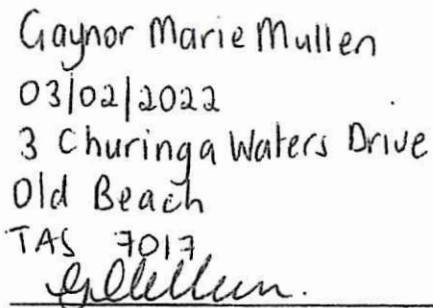 Gaynor Marie Mullen
03/02/2022
3 Churinga Waters Drive
Old Beach
TAS 7017